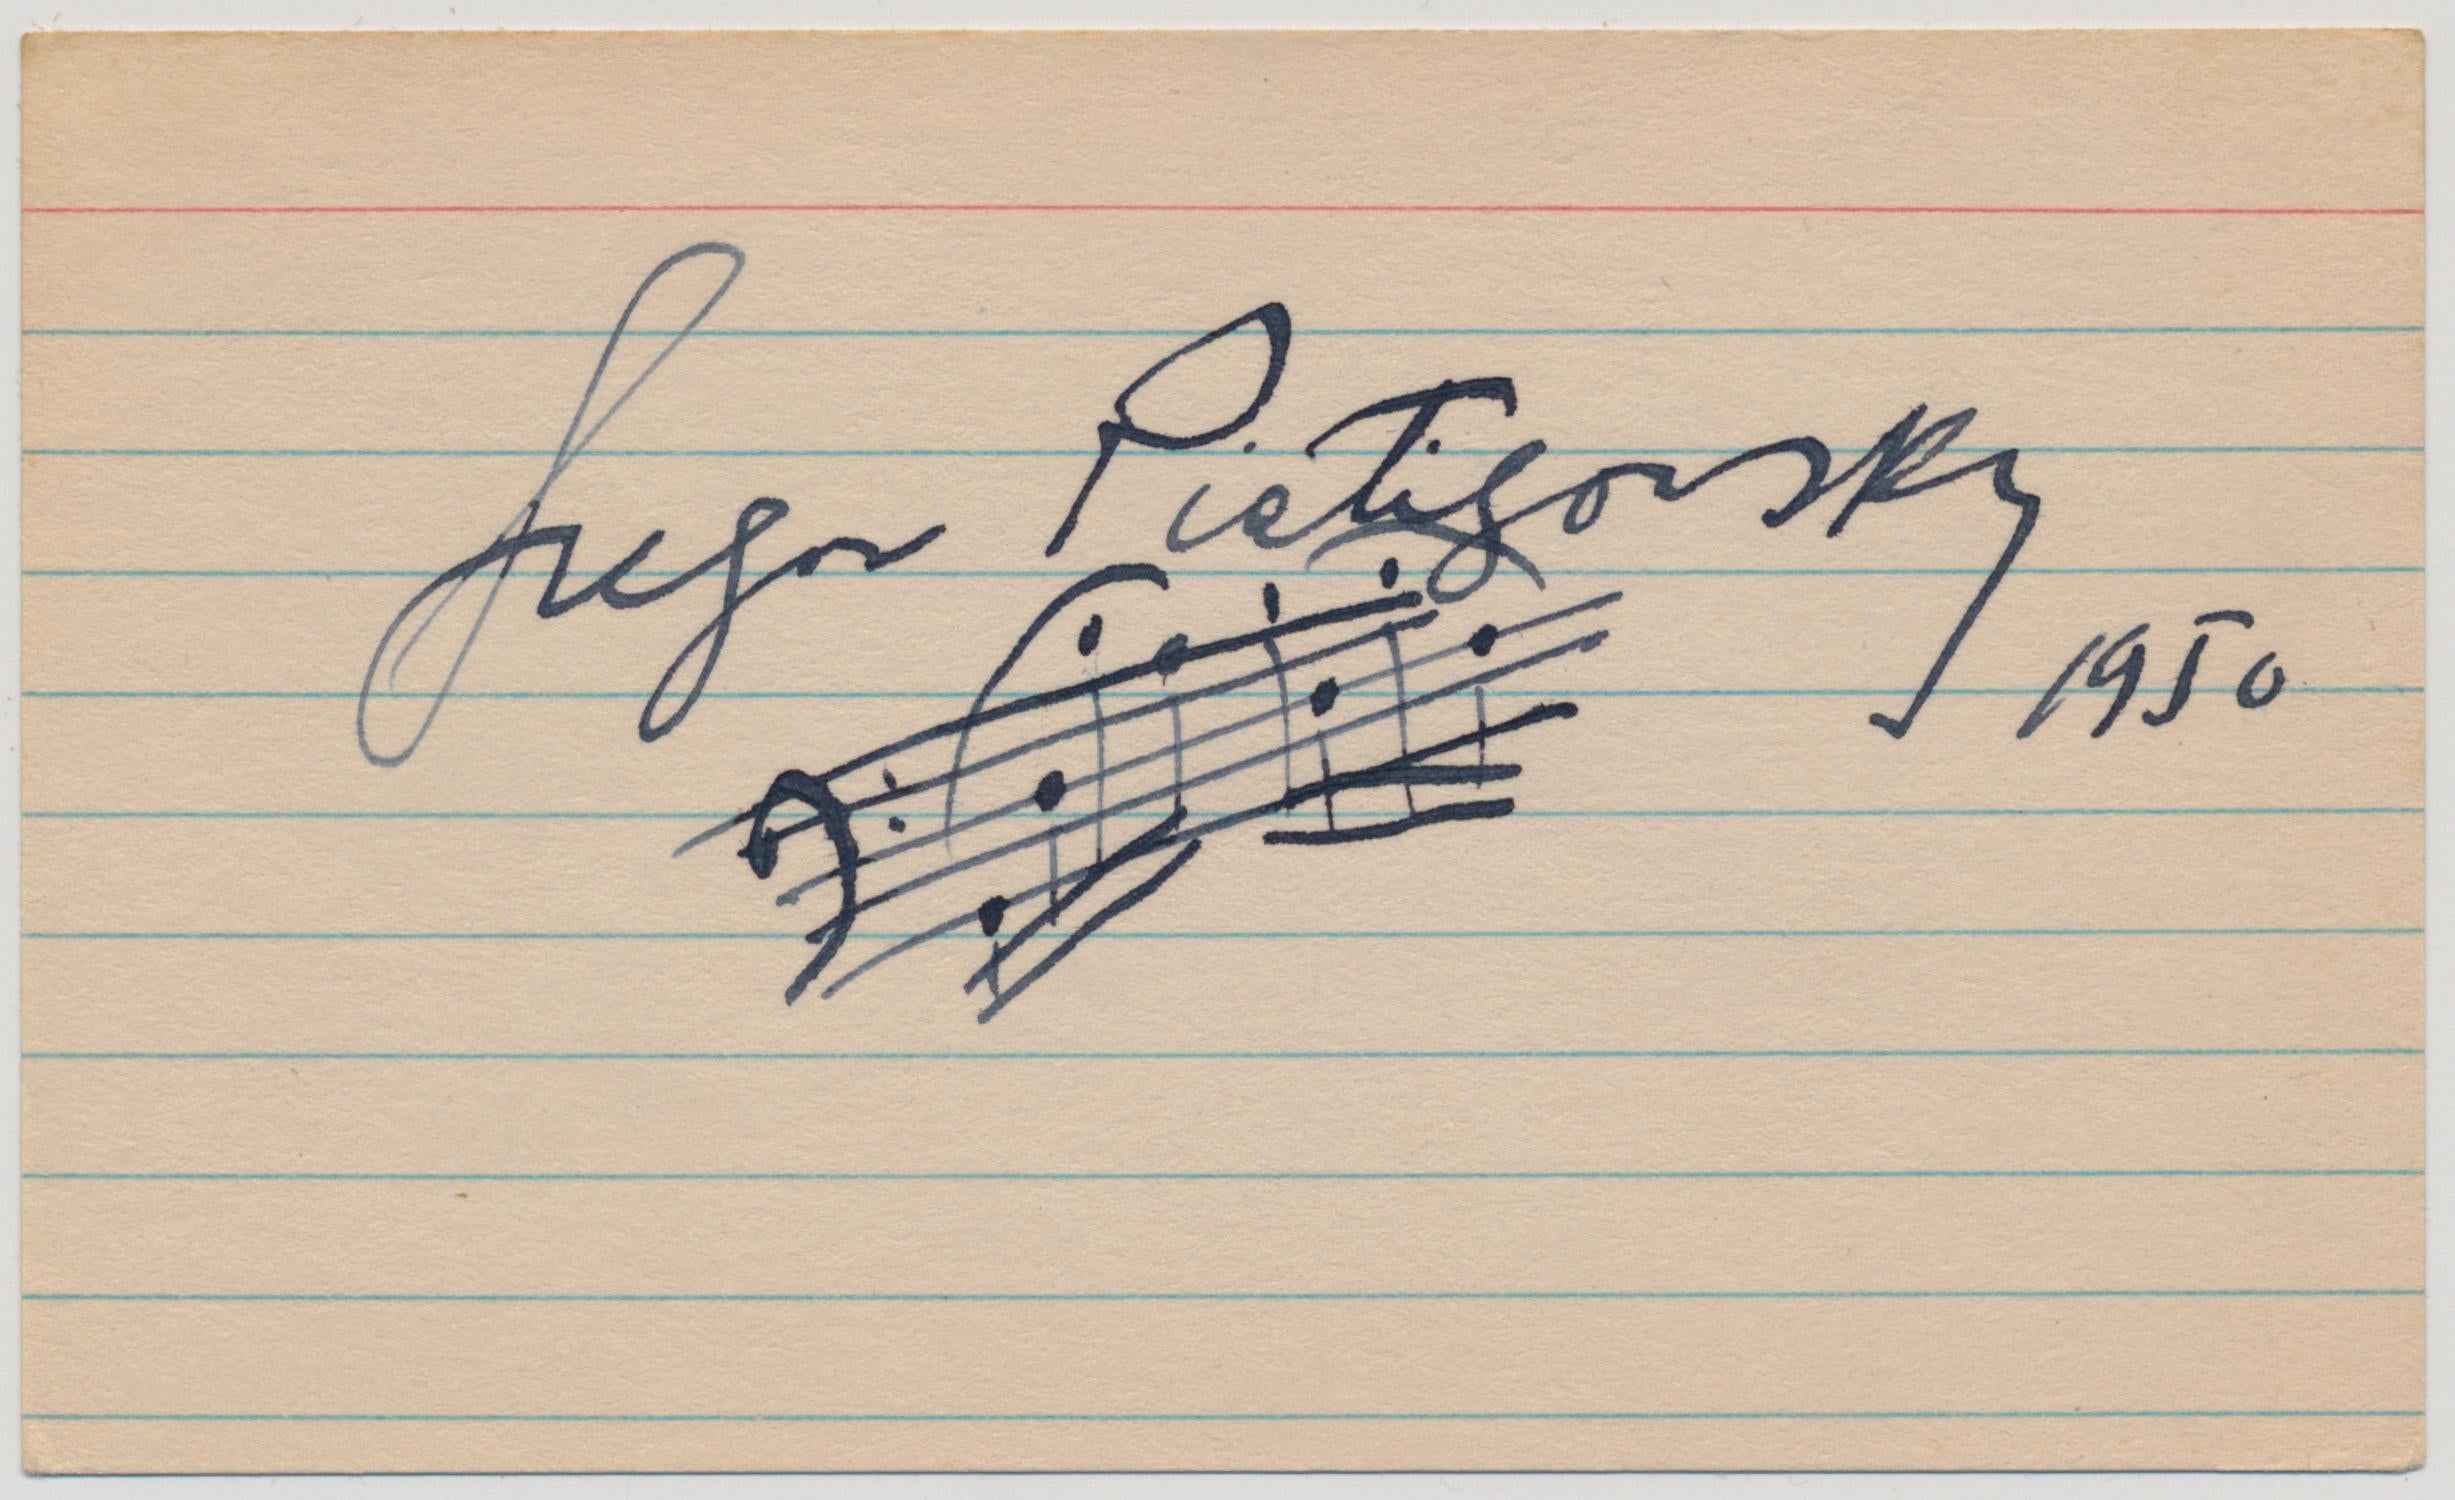 Gregor Piatigorsky
1950